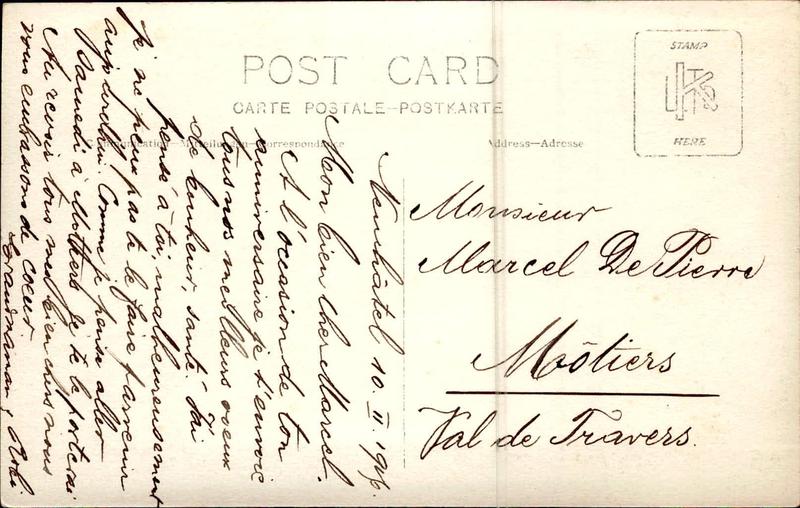 POST CARD
CARTE POSTALE—POSTKARTE
Communication—Mitteilung—Correspondance
Address—Adresse
STAMP
HERE
Neuchâtel 10. II. 19
Mon bien cher Marcel.
A l'occasion de ton
anniversaire je t'envoie
tous nos meilleurs voeux
de bonheur, santé. J'ai
pensé à toi, malheureusement
je ne peux pas te le faire parvenir
aujourd'hui. Comme je pense aller
Samedi à Môtiers je te le porterai
Au revoir tous mes bien chers nous
vous embrassons de coeur
Grandmaman &
Monsieur
Marcel De Pierre
Môtiers
Val de Travers.